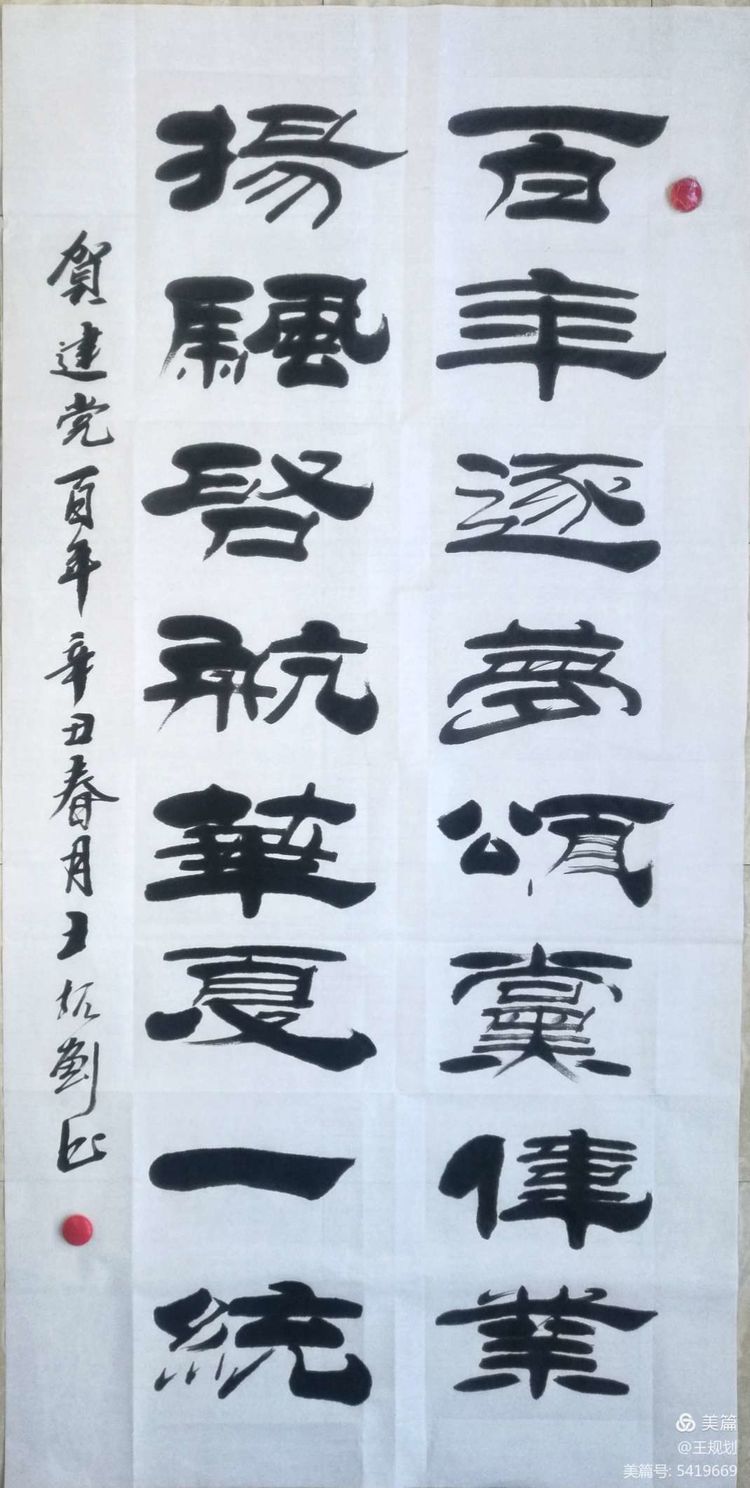 百年逐夢頌黨偉業
揚颿啓航華夏一統
賀建党百年辛丑春月王
美篇
@王规划
美篇号: 5419669